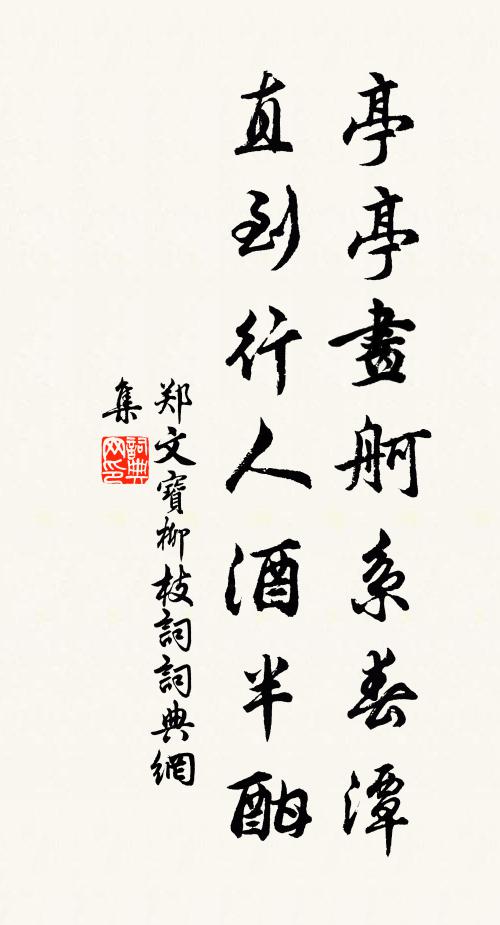 亭亭畫舸系春潭
直到行人酒半酣
郑文寶柳枝詞詞典網
集
詞典網印